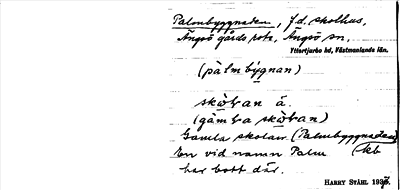 Palmbyggnaden, f.d. skolhus,
Ängsö gårds rote, Ängsö sn,
Yttertjurbo hd, Västmanlands län.
(pàlmbygnan)
skòlan á.
(gàmla skòlan)
Gamla skolan (Palmbyggnaden)
En vid namn Palm
har bott där.
HARRY STÅHL 1937.